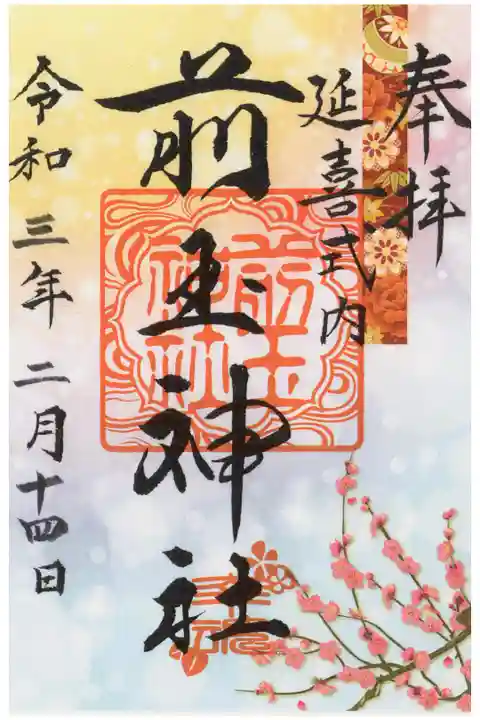 奉拝
延喜式内
前玉神社
前玉神社
令和三年二月十四日